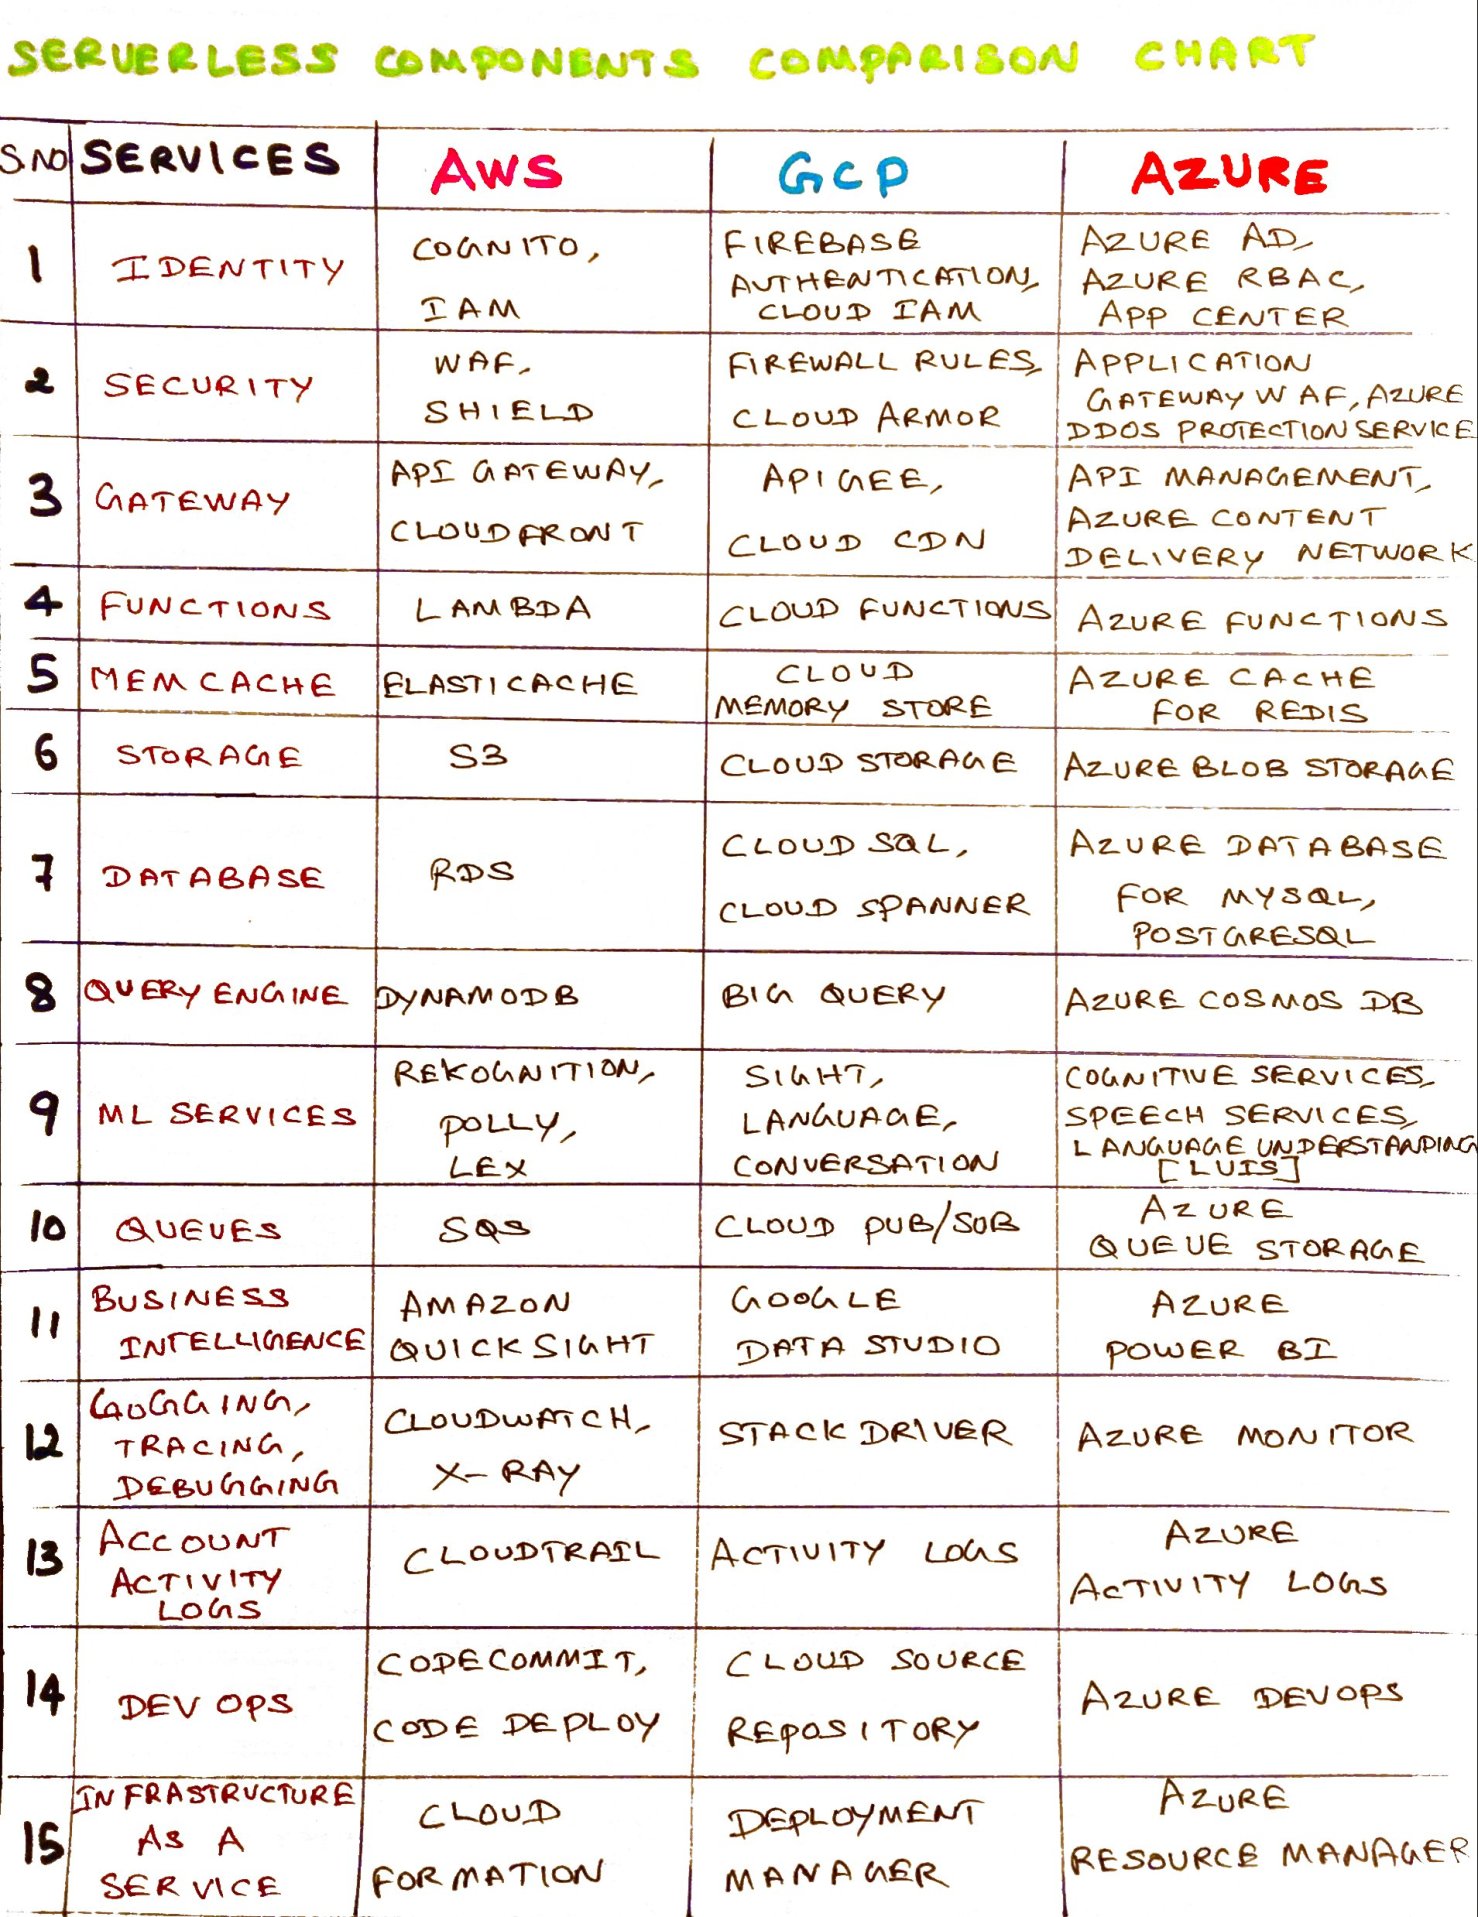 SERVERLESS COMPONENTS COMPARISON CHART
S.NO SERVICES AWS GCP AZURE
1 IDENTITY
COGNITO,
IAM
FIREBASE
AUTHENTICATION,
CLOUD IAM
AZURE AD,
AZURE RBAC,
APP CENTER
2 SECURITY
WAF,
SHIELD
FIREWALL RULES,
CLOUD ARMOR
APPLICATION
GATEWAY WAF, AZURE
DDOS PROTECTION SERVICE
3 GATEWAY
API GATEWAY,
CLOUDFRONT
APIGEE,
CLOUD CDN
API MANAGEMENT,
AZURE CONTENT
DELIVERY NETWORK
4 FUNCTIONS
LAMBDA
CLOUD FUNCTIONS
AZURE FUNCTIONS
5 MEMCACHE
ELASTICACHE
CLOUD
MEMORY STORE
AZURE CACHE
FOR REDIS
6 STORAGE
S3
CLOUD STORAGE
AZURE BLOB STORAGE
7 DATABASE
RDS
CLOUD SQL,
CLOUD SPANNER
AZURE DATABASE
FOR MYSQL,
POSTGRESQL
8 QUERY ENGINE
DYNAMODB
BIG QUERY
AZURE COSMOS DB
9 ML SERVICES
REKOGNITION,
POLLY,
LEX
SIGHT,
LANGUAGE,
CONVERSATION
COGNITIVE SERVICES,
SPEECH SERVICES,
LANGUAGE UNDERSTANDING
[LUIS]
10 QUEUES
SQS
CLOUD PUB/SUB
AZURE
QUEUE STORAGE
11 BUSINESS
INTELLIGENCE
AMAZON
QUICKSIGHT
GOOGLE
DATA STUDIO
AZURE
POWER BI
12 LOGGING,
TRACING,
DEBUGGING
CLOUDWATCH,
X-RAY
STACKDRIVER
AZURE MONITOR
13 ACCOUNT
ACTIVITY
LOGS
CLOUDTRAIL
ACTIVITY LOGS
AZURE
ACTIVITY LOGS
14 DEVOPS
CODECOMMIT,
CODE DEPLOY
CLOUD SOURCE
REPOSITORY
AZURE DEVOPS
15 INFRASTRUCTURE
AS A
SERVICE
CLOUD
FORMATION
DEPLOYMENT
MANAGER
AZURE
RESOURCE MANAGER